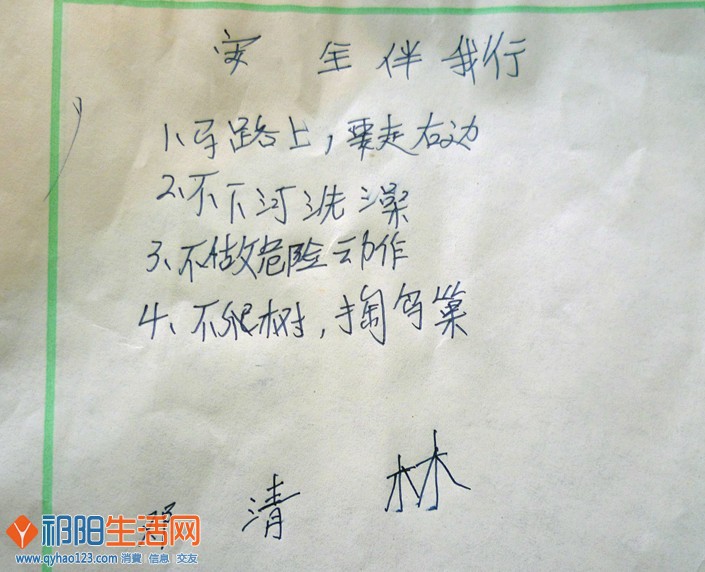 安全伴我行
1、马路上,要走右边
2、不下河洗澡
3、不做危险动作
4、不爬树,掏鸟巢
清林
祁阳生活网
www.qyhao123.com 消費 信息 交友